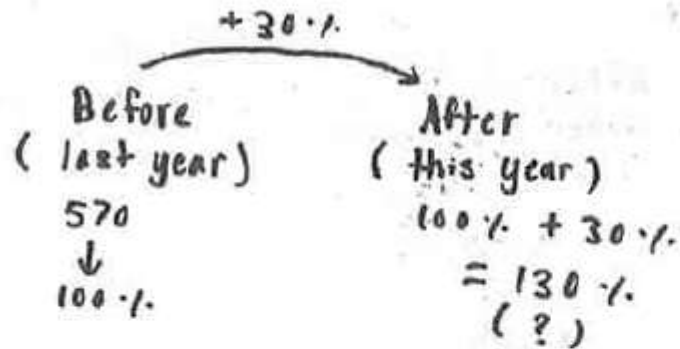 + 30 %
Before
( last year )
570
↓
100 %
After
( this year )
100 % + 30 %
= 130 %
( ? )